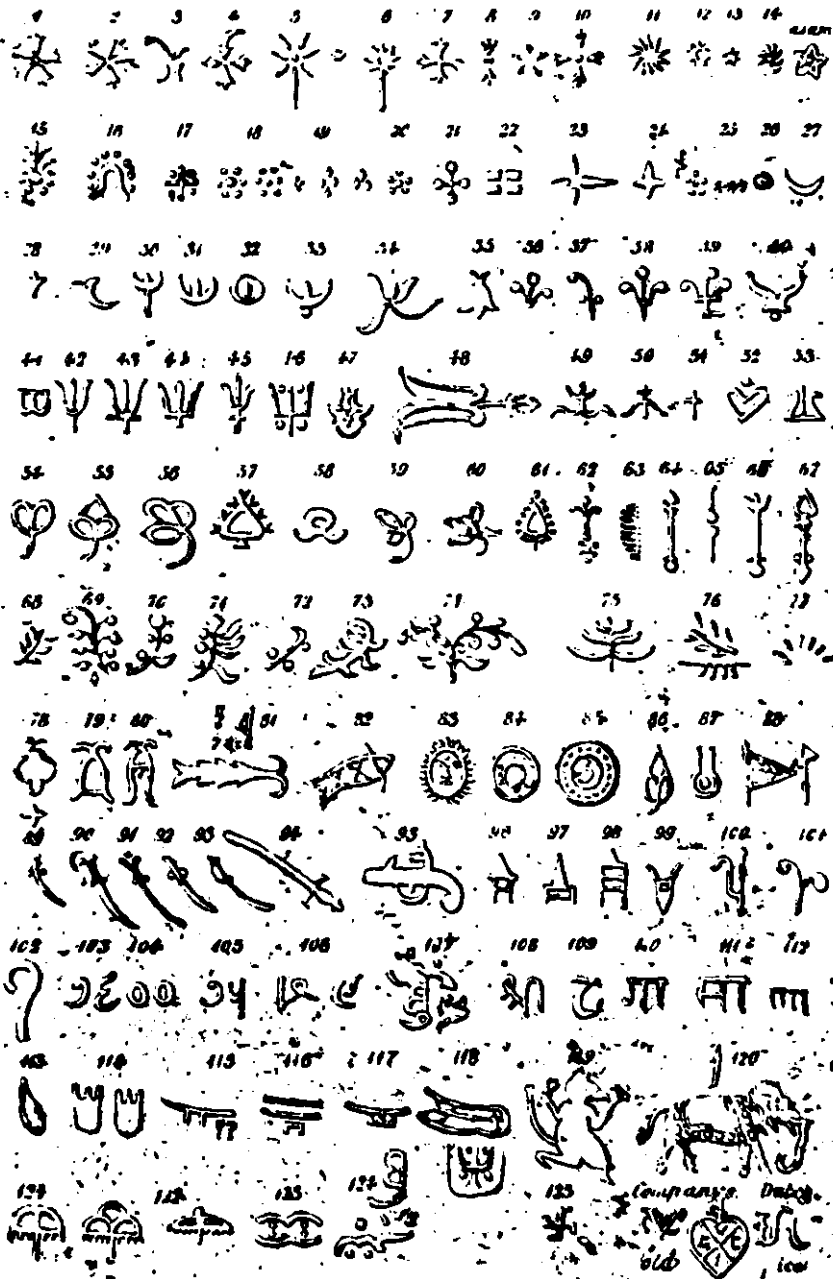 1 2 3 4 5 6 7 8 9 10 11 12 13 14
15 16 17 18 19 20 21 22 23 24 25 26 27
28 29 30 31 32 33 34 35 36 37 38 39 40
41 42 43 44 45 46 47 48 49 50 51 52 53
54 55 56 57 58 59 60 61 62 63 64 65 66 67
68 69 70 71 72 73 74 75 76 77
78 79 80 81 82 83 84 85 86 87 88
89 90 91 92 93 94 95 96 97 98 99 100 101
102 103 104 105 106 107 108 109 110 111 112
113 114 115 116 117 118 119 120
121 122 123 124 125 Company's
old